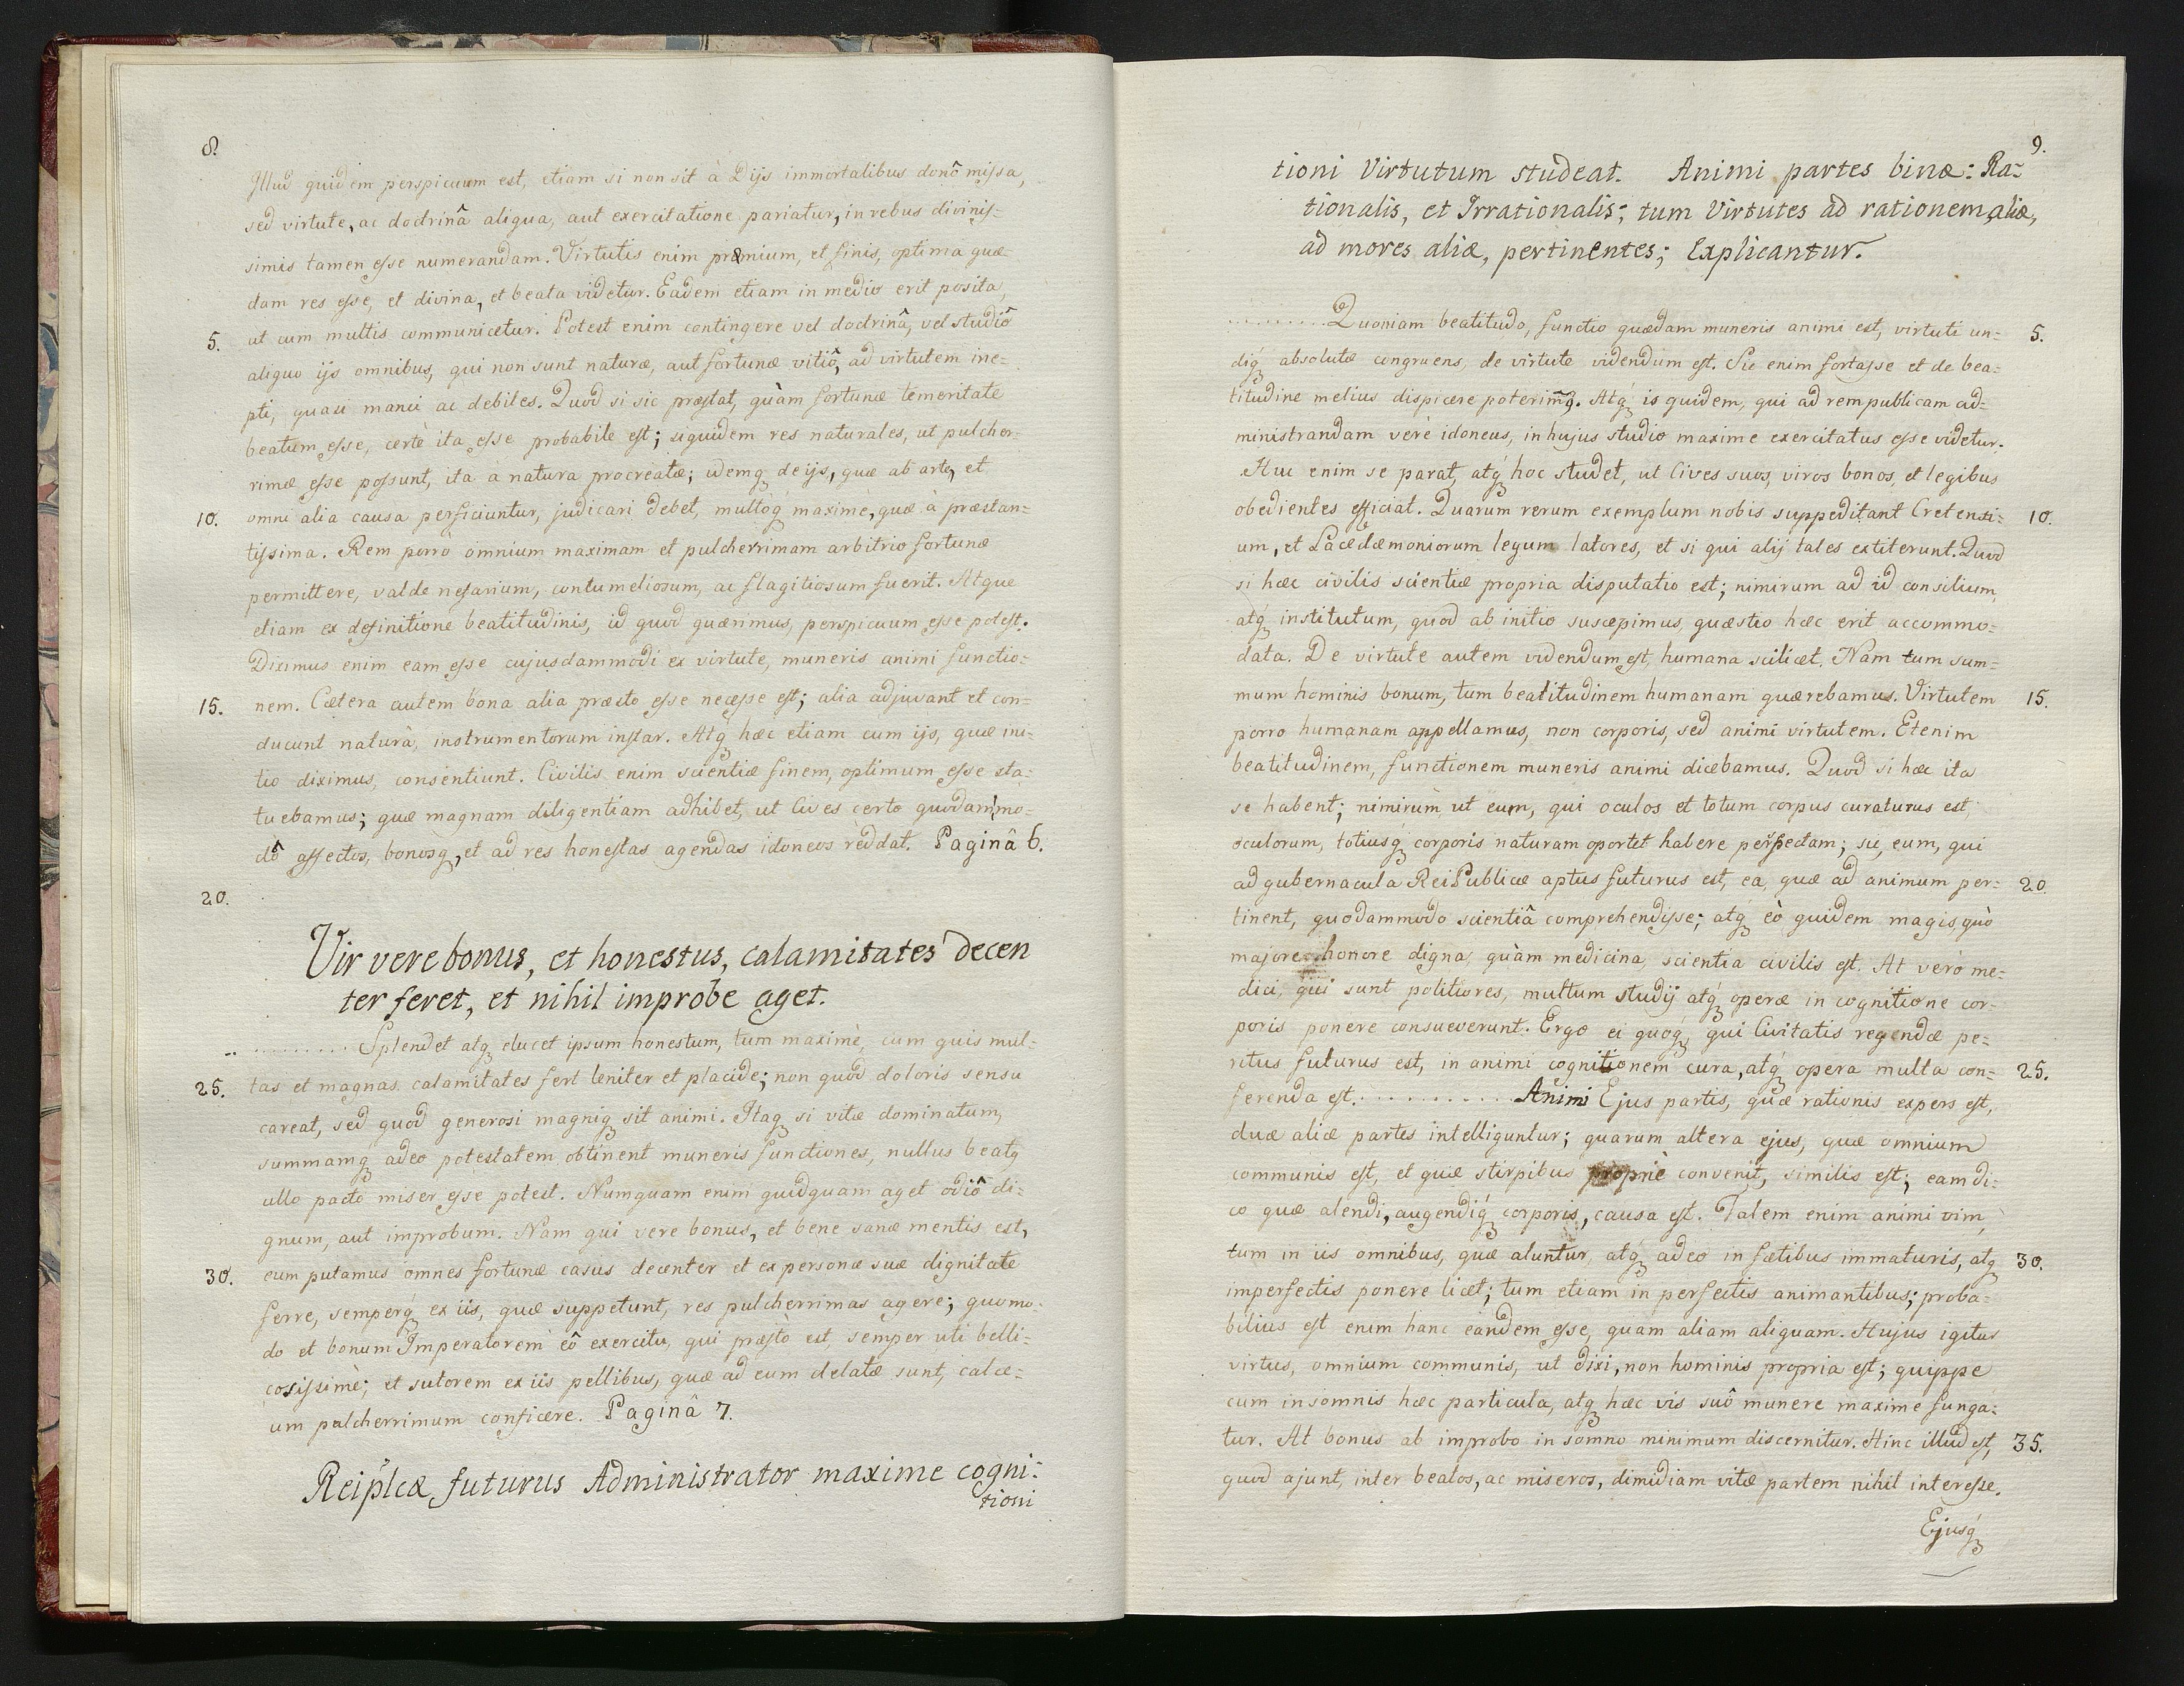 8.
Illud quidem perspicuum est, etiam si non sit à Dijs immortalibus donô missa,
sed virtute, ac doctrinâ aliqua, aut exercitatione pariatur, in rebus divinis-
simis tamen esse numerandam. Virtutis enim præmium, et finis, optima quæ-
dam res esse, et divina, et beata videtur. Eadem etiam in medio erit posita,
5. ut cum multis communicetur. Potest enim contingere vel doctrinâ, vel studiô
aliquo ijs omnibus, qui non sunt naturæ, aut fortunæ vitiô, ad virtutem ine-
pti, quasi manci ac debiles. Quod si sic præstat, quàm fortunæ temeritate
beatum esse, certè ita esse probabile est; siquidem res naturales, ut pulcher-
rimæ esse possunt, ita à natura procreatæ; idemq de ijs, quæ ab arte, et
10. omni alia causa perficiuntur, judicari debet, multoq maximè, quæ à præstan-
tissima. Rem porrò omnium maximam et pulcherrimam arbitrio fortunæ
permittere, valde nefarium, contumeliosum, ac flagitiosum fuerit. Atque
etiam ex definitione beatitudinis, id quod quærimus, perspicuum esse potest.
Diximus enim eam esse cujusdammodi ex virtute, muneris animi functio-
15. nem. Cætera autem bona alia præsto esse necesse est; alia adjuvant et con-
ducunt naturâ, instrumentorum instar. Atq́ hæc etiam cum ijs, quæ ini-
tio diximus, consentiunt. Civilis enim scientiæ finem, optimum esse sta-
tuebamus; quæ magnam diligentiam adhibet, ut Cives certo quodammo-
dô affectos, bonosq, et ad res honestas agendas idoneos reddat. Paginâ 6.
20.
Vir vere bonus, et honestus, calamitates decen
ter feret, et nihil improbe aget.
.. ......... Splendet atq elucet ipsum honestum, tum maximè, cum quis mul-
25. tas et magnas calamitates fert leniter et placide; non quod doloris sensu
careat, sed quod generosi magniq sit animi. Itaq si vitæ dominatum,
summamq adeo potestatem obtinent muneris functiones, nullus beatq
ullo pacto miser esse potest. Numquam enim quidquam aget odiô di-
gnum, aut improbum. Nam qui vere bonus, et bene sanæ mentis est,
30. eum putamus omnes fortunæ casus decenter et ex personæ suæ dignitate
ferre, semperq́ ex iis, quæ suppetunt, res pulcherrimas agere; quomo-
do et bonum Imperatorem eô exercitu, qui præstò est, semper uti belli-
cosissimè; et sutorem ex iis pellibus, quæ ad eum delatæ sunt, calce-
um pulcherrimum conficere. Paginâ 7.
Reiplcæ futurus Administrator maxime cogni-
tioni
9.
tioni Virtutum studeat. Animi partes binæ: Ra-
tionalis, et Irrationalis; tum Virtutes ad rationem aliæ,
ad mores aliæ, pertinentes; Explicantur.
......... Quoniam beatitudo, functio quædam muneris animi est, virtuti un- 5.
diq́ absolutæ congruens, de virtute videndum est. Sic enim fortasse et de bea-
titudine melius dispicere poterimq. Atq́ is quidem, qui ad rempublicam ad-
ministrandam verè idoneus, in hujus studio maxime exercitatus esse videtur.
Huc enim se parat, atq́ hoc studet, ut Cives suos, viros bonos, et legibus
obedientes efficiat. Quarum rerum exemplum nobis suppeditant Cretensi- 10.
um, et Lacedæmoniorum legum latores, et si qui alij tales extiterunt. Quod
si hæc civilis scientiæ propria disputatio est; nimirum ad id consilium,
atq́ institutum, quod ab initio suscepimus, quæstio hæc erit accommo-
data. De virtute autem videndum est, humana scilicet. Nam tum sum-
mum hominis bonum, tum beatitudinem humanam quærebamus. Virtutem 15.
porro humanam appellamus, non corporis, sed animi virtutem. Etenim
beatitudinem, functionem muneris animi dicebamus. Quod si hæc ita
se habent; nimirùm ut eum, qui oculos et totum corpus curaturus est,
oculorum, totiusq́ corporis naturam oportet habere perspectam; sic, eum, qui
ad gubernacula ReiPublicæ aptus futurus est, ea, quæ ad animum per- 20.
tinent, quodammodo scientiâ comprehendisse; atq́ eò quidem magis, quò
majore honore digna, quàm medicina, scientia civilis est. At verò me-
dici, qui sunt politiores, multum studij atq́ operæ in cognitione cor-
poris ponere consueverunt. Ergo ei quoq́, qui Civitatis regendæ pe-
ritus futurus est, in animi cognitionem cura, atq́ opera multa con- 25.
ferenda est. ........... Animi Ejus partis, quæ rationis expers est,
duæ aliæ partes intelliguntur; quarum altera ejus, quæ omnium
communis est, et quæ stirpibus propriè convenit, similis est; eam di-
co quæ alendi, augendiq́ corporis, causa est. Talem enim animi vim,
tum in iis omnibus, quæ aluntur, atq́ adeo in fætibus immaturis, atq 30.
imperfectis ponere licet; tum etiam in perfectis animantibus; proba-
bilius est enim hanc eandem esse, quam aliam aliquam. Hujus igitur
virtus, omnium communis, ut dixi, non hominis propria est; quippe
cum in somnis hæc particula, atq hæc vis suô munere maxime funga-
tur. At bonus ab improbo in somno minimum discernitur. Hinc illud est, 35.
quod ajunt, inter beatos, ac miseros, dimidiam vitæ partem nihil interesse.
Ejusq́